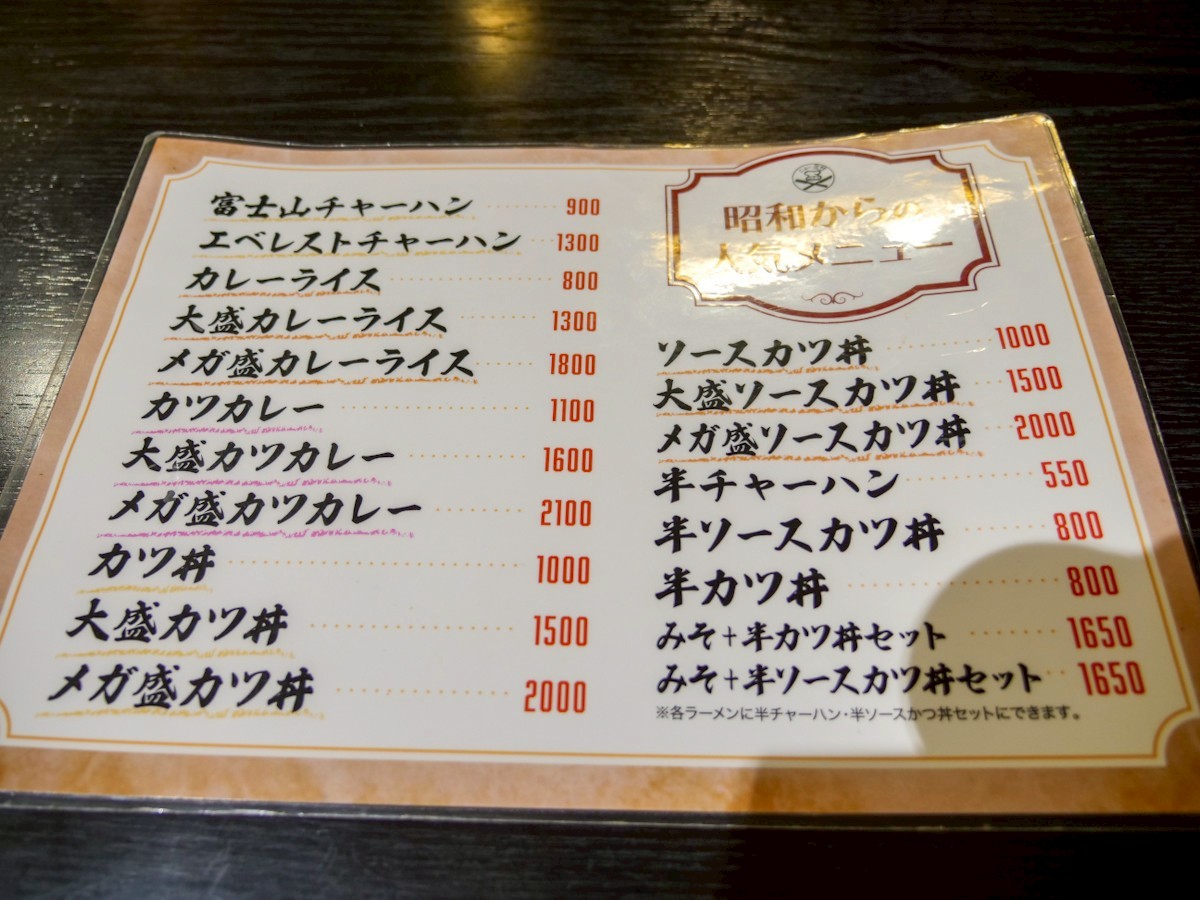 富士山チャーハン 900
エベレストチャーハン 1300
カレーライス 800
大盛カレーライス 1300
メガ盛カレーライス 1800
カツカレー 1100
大盛カツカレー 1600
メガ盛カツカレー 2100
カツ丼 1000
大盛カツ丼 1500
メガ盛カツ丼 2000
昭和からの
人気メニュー
ソースカツ丼 1000
大盛ソースカツ丼 1500
メガ盛ソースカツ丼 2000
半チャーハン 550
半ソースカツ丼 800
半カツ丼 800
みそ+半カツ丼セット 1650
みそ+半ソースカツ丼セット 1650
※各ラーメンに半チャーハン・半ソースかつ丼セットにできます。